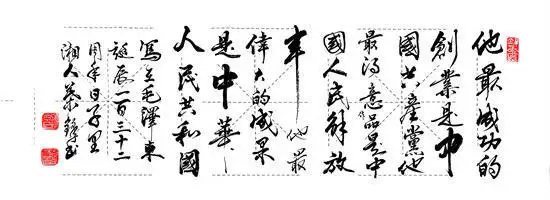 他最成功的
創業是中
國共產黨他
最得意品是中
國人民解放
軍他最
偉大的成果
是中華
人民共和國
寫在毛澤東
誕辰一百三十二
周年日子里
湘人